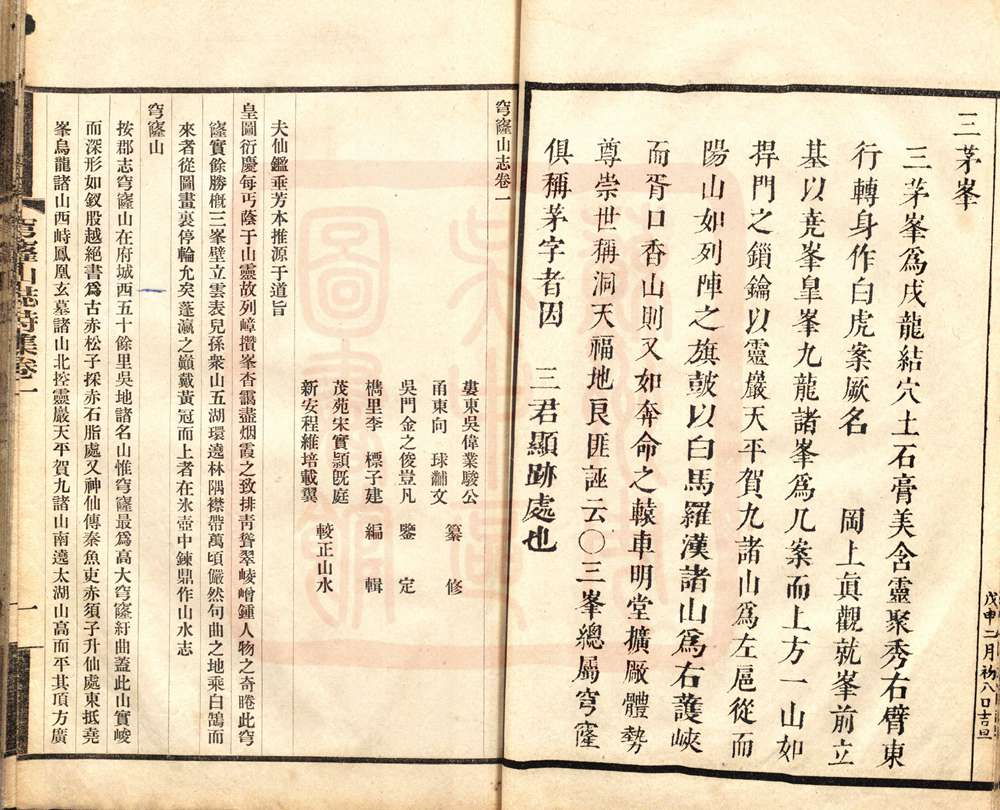 三茅峯
三茅峯爲戌龍結穴土石膏美含靈聚秀右臂東
行轉身作白虎案厥名　岡上眞觀就峯前立
基以堯峯皇峯九龍諸峯爲几案而上方一山如
捍門之鎖鑰以靈巖天平賀九諸山爲左扈從而
陽山如列陣之旗鼓以白馬羅漢諸山爲右護峽
而胥口香山則又如奔命之轅車明堂擴廠體勢
尊崇世稱洞天福地良匪誣云〇三峯總屬穹窿
俱稱茅字者因　三君顯跡處也
戊申二月初八日吉旦
穹窿山志卷一
婁東吳偉業駿公
甬東向　球瀟文　纂修
吳門金之俊豈凡　鑒定
檇里李　標子建　編輯
茂苑宋實穎旣庭
新安程維培載翼　較正山水
夫仙鑑垂芳本推源于道旨
皇圖衍慶每丐蔭于山靈故列嶂攢峯杳靄盡烟霞之致排靑聳翠崚嶒鍾人物之奇睠此穹
窿實餘勝槪三峯壁立雲表兒孫衆山五湖環遶林隅襟帶萬頃儼然句曲之地乘白鵠而
來者從圖畫裏停輪允矣蓬瀛之巔戴黃冠而上者在氷壺中鍊鼎作山水志
穹窿山
按郡志穹窿山在府城西五十餘里吳地諸名山惟穹窿最爲高大穹窿紆曲蓋此山實峻
而深形如釵股越絕書爲古赤松子採赤石脂處又神仙傳秦魚吏赤須子升仙處東抵堯
峯烏龍諸山西峙鳳凰玄墓諸山北控靈巖天平賀九諸山南遶太湖山高而平其頂方廣
穹窿山志詩集卷一
一